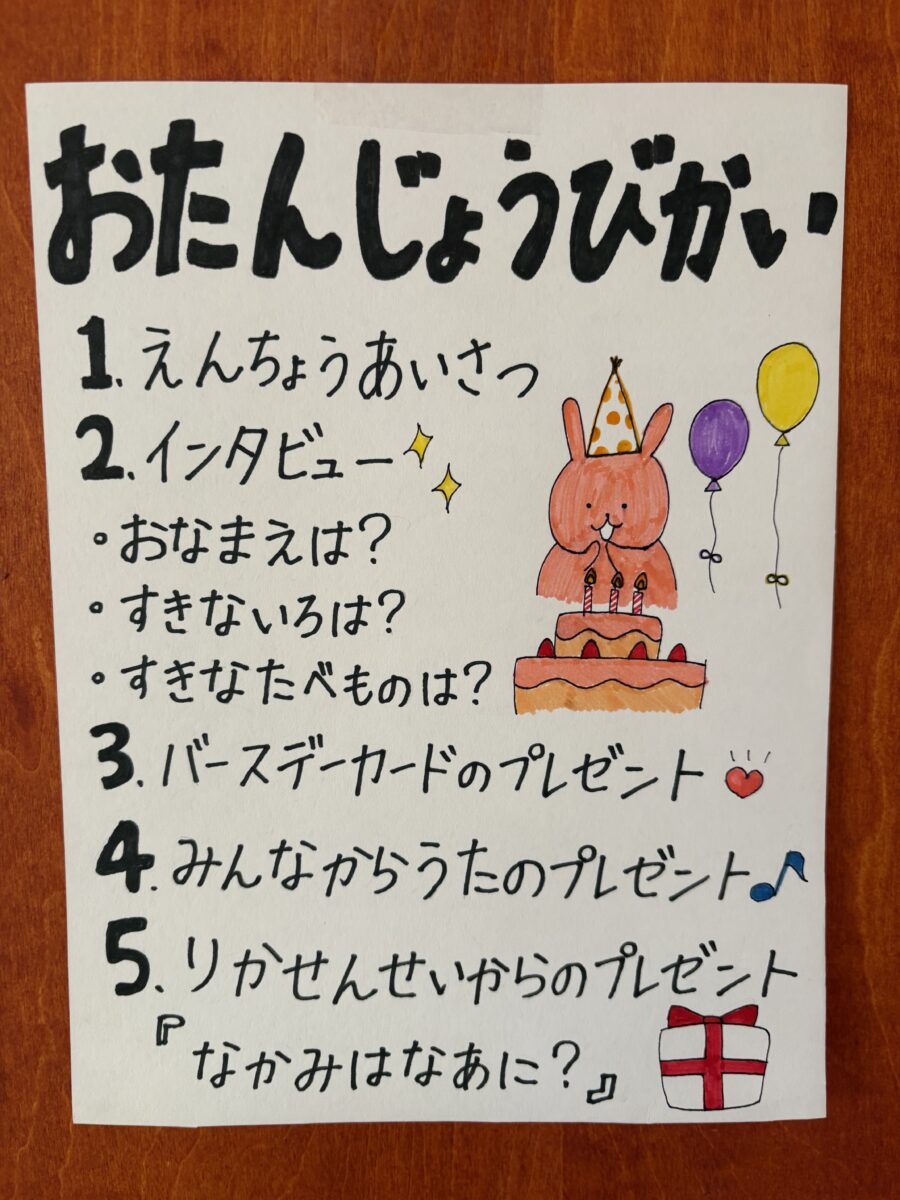 おたんじょうびかい
1. えんちょうあいさつ
2. インタビュー
・おなまえは?
・すきないろは?
・すきなたべものは?
3. バースデーカードのプレゼント
4. みんなからうたのプレゼント
5. りかせんせいからのプレゼント
『なかみはなあに?』